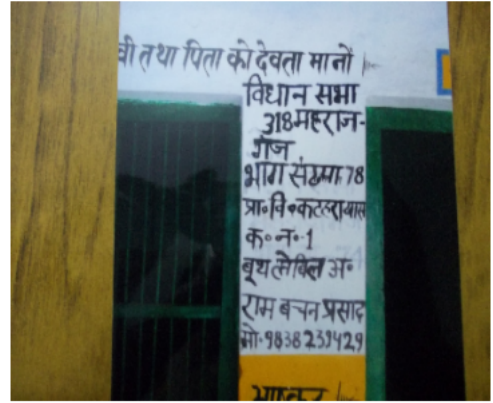 वी तथा पिता को देवता मानों ।
विधान सभा
318महराज-
गंज
भाग संख्या 78
प्रा॰वि॰कटहराखास
क॰न॰1
बूथ लेविल अ॰
राम बचन प्रसाद
मो॰9838239429